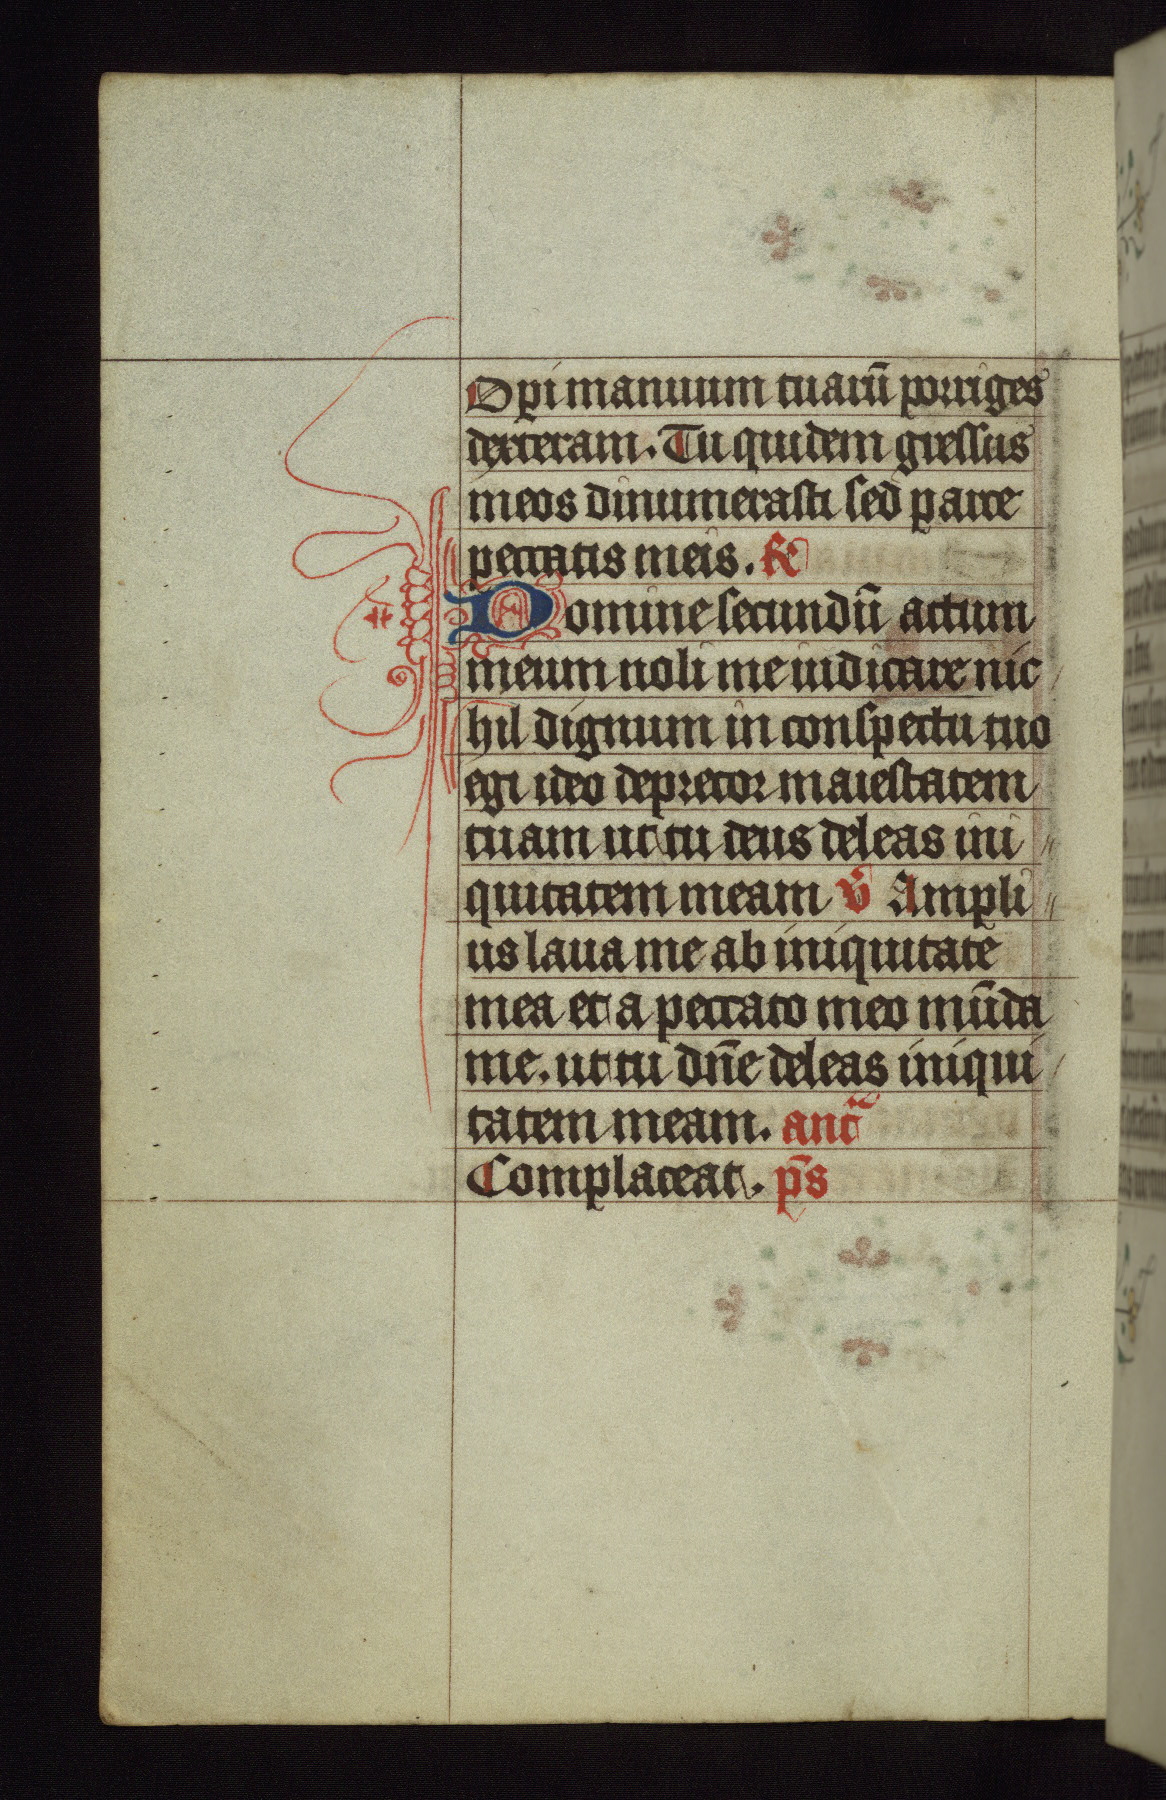 Opi manuum tuaru̅ porriges
dexteram. Tu quidem gressus
meos dinumerasti sed parce
peccatis meis. R
Domine secundu̅ actum
meum noli me iudicare nic
hil dignum in conspectu tuo
egi ideo deprecor maiestatem
tuam ut tu deus deleas ini
quitatem meam v̅ Ampli
us laua me ab iniquitate
mea et a peccato meo mu̅da
me. ut tu dn̅e deleas iniqui
tatem meam. ant̅
Complaceat. ps̅